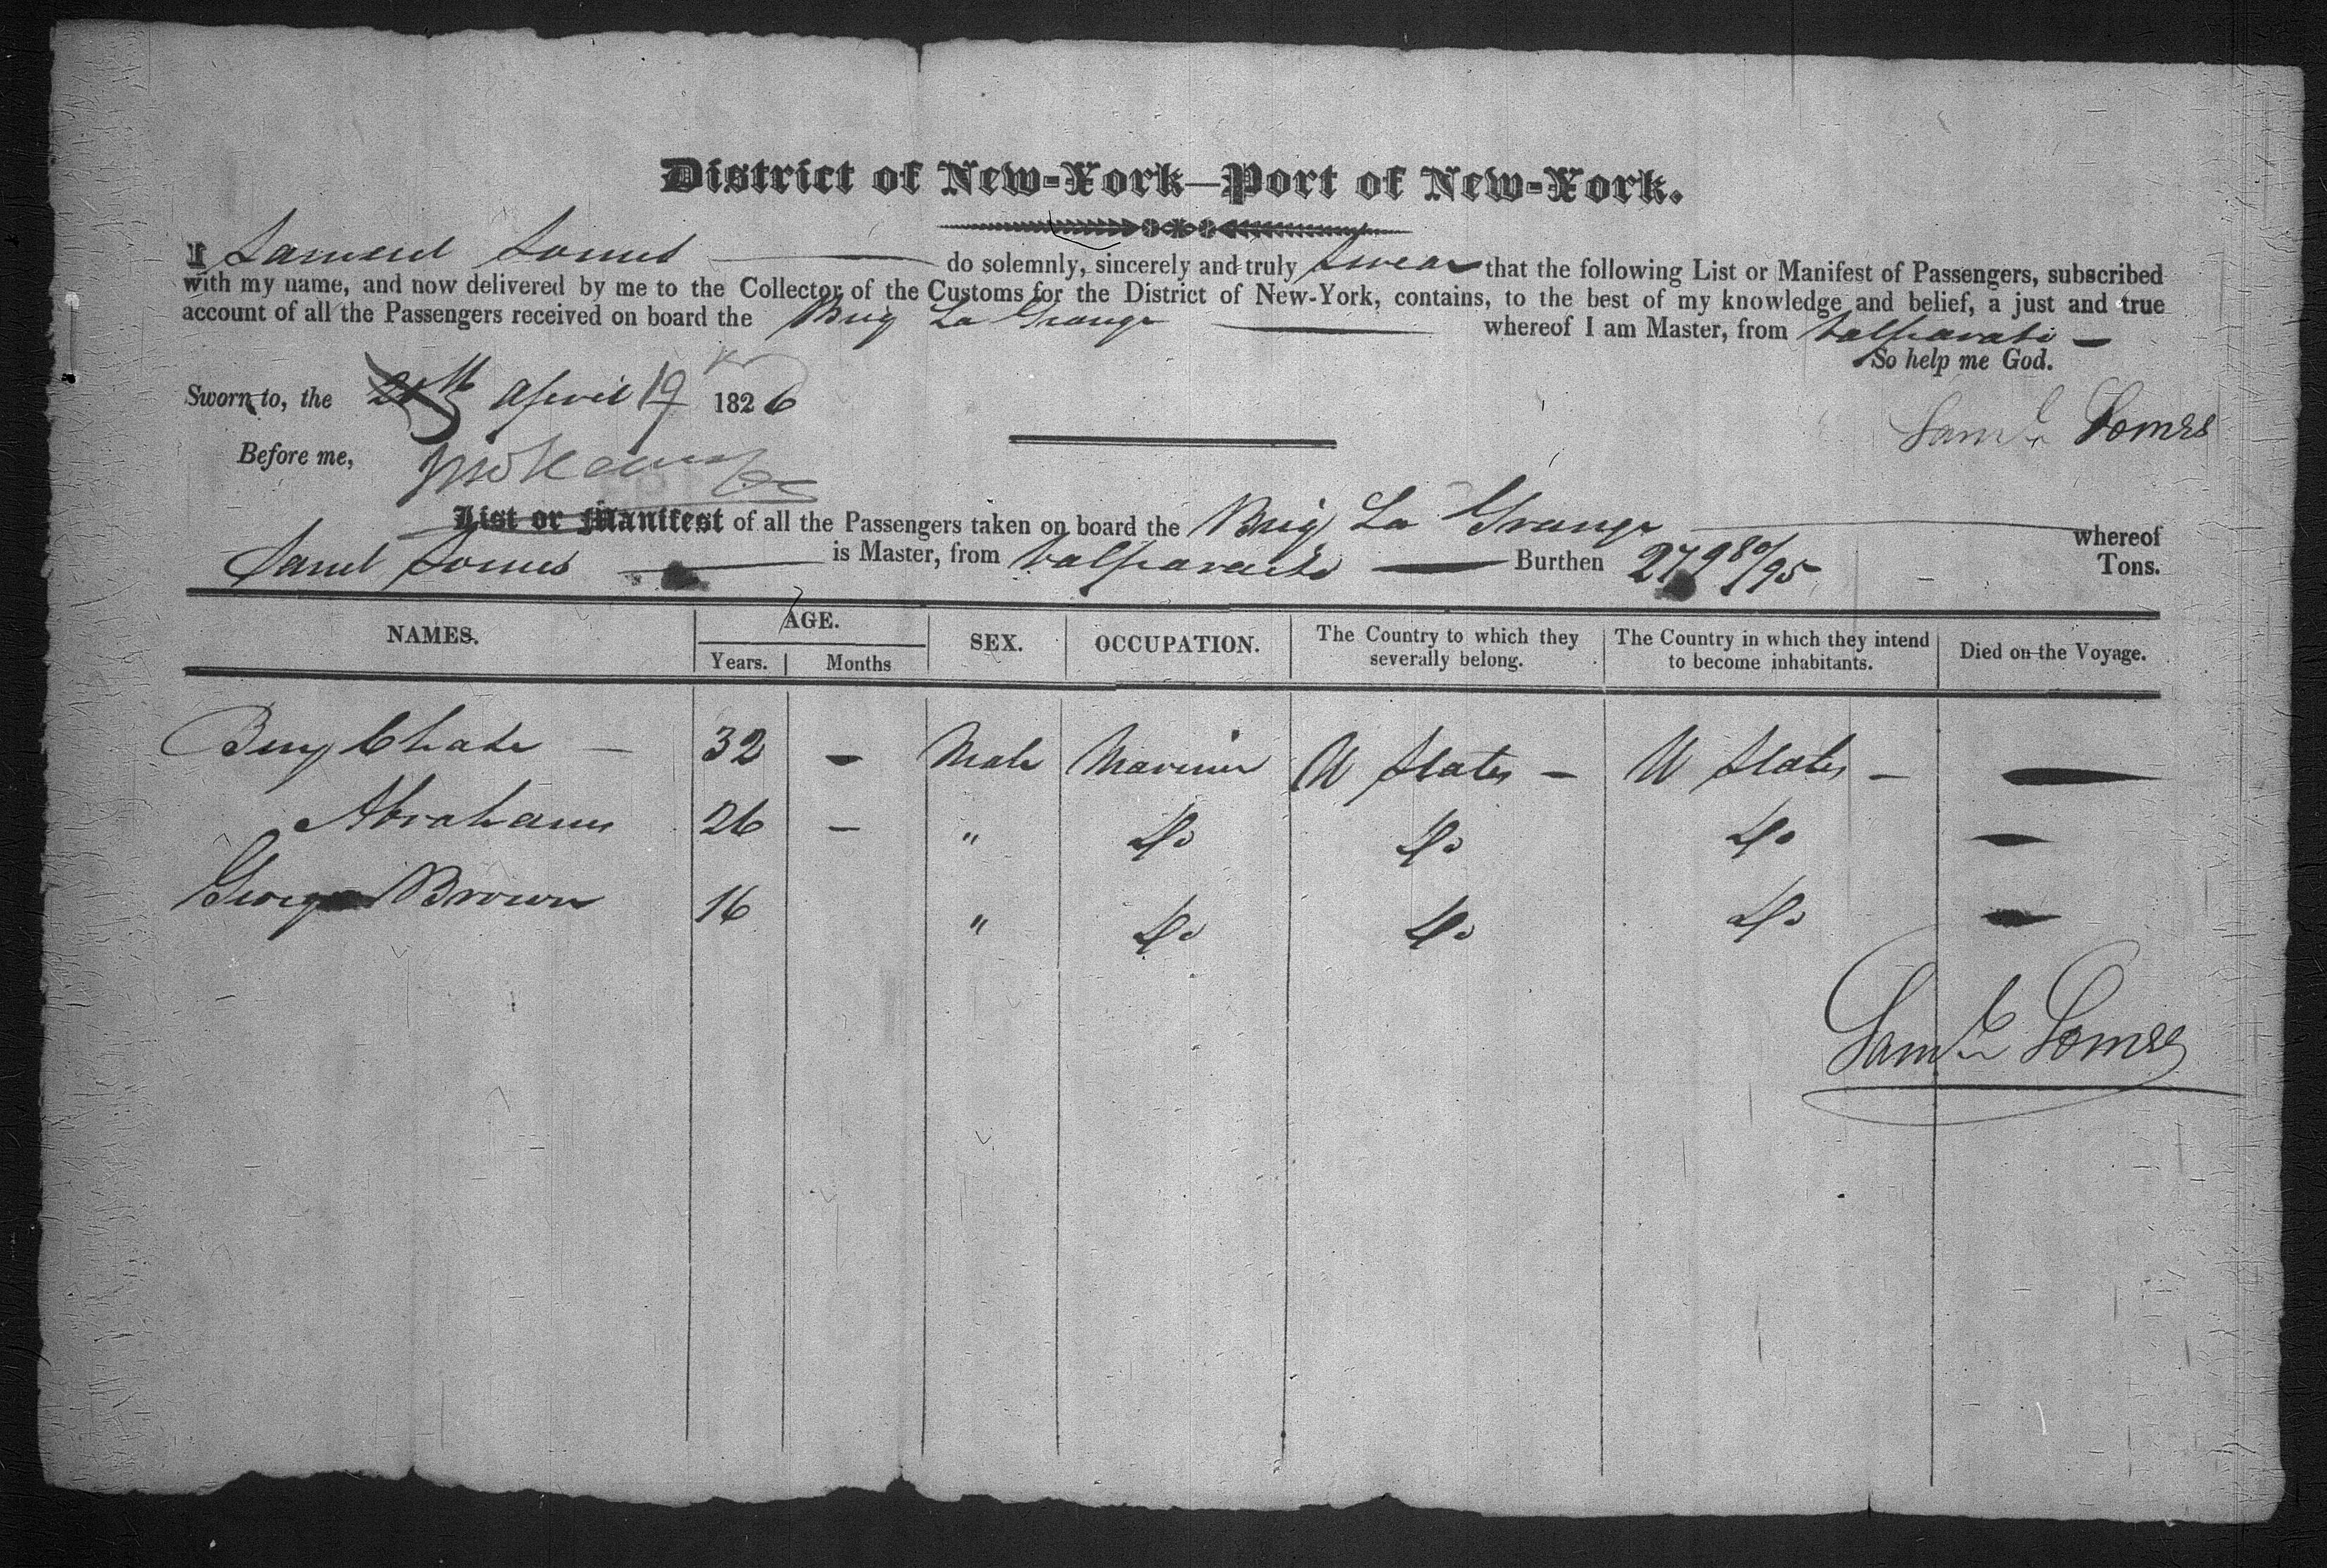 District of New-York—Port of New-York.
I Samuel Somes do solemnly, sincerely and truly swear that the following List or Manifest of Passengers, subscribed
with my name, and now delivered by me to the Collector of the Customs for the District of New-York, contains, to the best of my knowledge and belief, a just and true
account of all the Passengers received on board the Brig La Grange whereof I am Master, from Valparaiso
So help me God.
Sworn to, the April 19 1826
Saml Somes
Before me,
List or Manifest of all the Passengers taken on board the Brig La Grange whereof
Saml Somes is Master, from Valparaiso Burthen 279 80/95 Tons.
NAMES. AGE. SEX. OCCUPATION. The Country to which they severally belong. The Country in which they intend to become inhabitants. Died on the Voyage.
Years. Months
Benj Chase — 32 — Male Mariner U States — U States —
Abrahams 26 — " Do Do Do —
George Brown 16 " Do Do Do —
Saml Somes